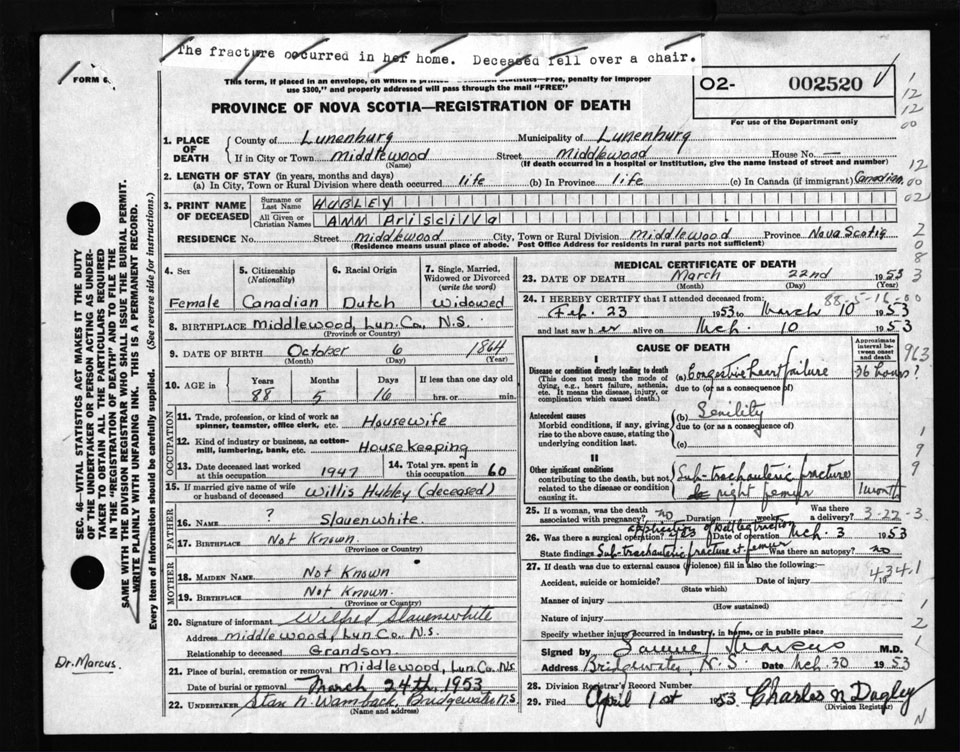 The fracture occurred in her home. Deceased fell over a chair.
FORM 6.
This form, if placed in an envelope, on which is printed Statistics—Free, penalty for improper
use $300," and properly addressed will pass through the mail "FREE"
PROVINCE OF NOVA SCOTIA—REGISTRATION OF DEATH
O2- 002520
For use of the Department only
1. PLACE OF DEATH
County of Lunenburg Municipality of Lunenburg
If in City or Town Middlewood Street Middlewood House No. —
(Name) (If death occurred in a hospital or institution, give the name instead of street and number)
2. LENGTH OF STAY (in years, months and days)
(a) In City, Town or Rural Division where death occurred life (b) In Province life (c) In Canada (if immigrant) Canadian
3. PRINT NAME OF DECEASED
Surname or Last Name HUBLEY
All Given or Christian Names ANN Priscilla
RESIDENCE No. Street Middlewood City, Town or Rural Division Middlewood Province Nova Scotia
(Residence means usual place of abode. Post Office Address for residents in rural parts not sufficient)
4. Sex
Female
5. Citizenship
(Nationality)
Canadian
6. Racial Origin
Dutch
7. Single, Married, Widowed or Divorced
(write the word)
Widowed
8. BIRTHPLACE Middlewood, Lun. Co., N.S.
(Province or Country)
9. DATE OF BIRTH October 6 1864
(Month) (Day) (Year)
10. AGE in
Years Months Days If less than one day old
88 5 16 hrs. or min.
OCCUPATION
11. Trade, profession, or kind of work as spinner, teamster, office clerk, etc. Housewife
12. Kind of industry or business, as cotton-mill, lumbering, bank, etc. Housekeeping
13. Date deceased last worked at this occupation 1947
14. Total yrs. spent in this occupation 60
15. If married give name of wife or husband of deceased Willis Hubley (deceased)
FATHER
16. Name ? Slauenwhite
17. Birthplace Not Known
(Province or Country)
MOTHER
18. Maiden Name Not Known
19. Birthplace Not Known.
(Province or Country)
20. Signature of informant Wilfred Slauenwhite
Address Middlewood, Lun. Co., N.S.
Relationship to deceased Grandson.
21. Place of burial, cremation or removal Middlewood, Lun. Co. N.S.
Date of burial or removal March 24th, 1953
22. UNDERTAKER Stan N. Wamback, Bridgewater N.S.
(Name and address)
MEDICAL CERTIFICATE OF DEATH
23. DATE OF DEATH March 22nd 1953
(Month) (Day) (Year)
88-5-16-00
24. I HEREBY CERTIFY that I attended deceased from:
Feb. 23 1953 to March 10 1953
and last saw her alive on Mch. 10 1953
CAUSE OF DEATH
Approximate interval between onset and death
I
Disease or condition directly leading to death
(This does not mean the mode of dying, e.g., heart failure, asthenia, etc. It means the disease, injury, or complication which caused death.)
(a) Congestive heart failure 36 hours?
due to (or as a consequence of)
Antecedent causes
Morbid conditions, if any, giving rise to the above cause, stating the underlying condition last.
(b) Senility
due to (or as a consequence of)
(c)
II
Other significant conditions
contributing to the death, but not related to the disease or condition causing it.
Sub-trochanteric fracture
right femur
1 month
25. If a woman, was the death associated with pregnancy? no Duration weeks Was there a delivery? 3-22-3
application of
26. Was there a surgical operation? yes Date of operation Mch. 3 1953
State findings Sub-trochanteric fracture rt. femur Was there an autopsy? no
27. If death was due to external causes (violence) fill in also the following:—
Accident, suicide or homicide? Date of injury 19
(State which)
Manner of injury
(How sustained)
Nature of injury
Specify whether injury occurred in industry, in home, or in public place
Signed by Samuel Marcus M.D.
Address Bridgewater, N.S. Date Mch. 30 1953
28. Division Registrar's Record Number
29. Filed April 1st 1953 Charles N Dagley
(Division Registrar)
SEC. 46—VITAL STATISTICS ACT MAKES IT THE DUTY
OF THE UNDERTAKER OR PERSON ACTING AS UNDER-
TAKER TO OBTAIN ALL THE PARTICULARS REQUIRED
IN THE "REGISTRATION OF DEATH" AND TO FILE THE
SAME WITH THE DIVISION REGISTRAR WHO SHALL ISSUE THE BURIAL PERMIT.
WRITE PLAINLY WITH UNFADING INK. THIS IS A PERMANENT RECORD.
Every item of information should be carefully supplied. (See reverse side for instructions.)
Dr. Marcus.
12
12
00
12
00
02
2
0
8
3
963
1
9
9
434.1
1
2
1
N